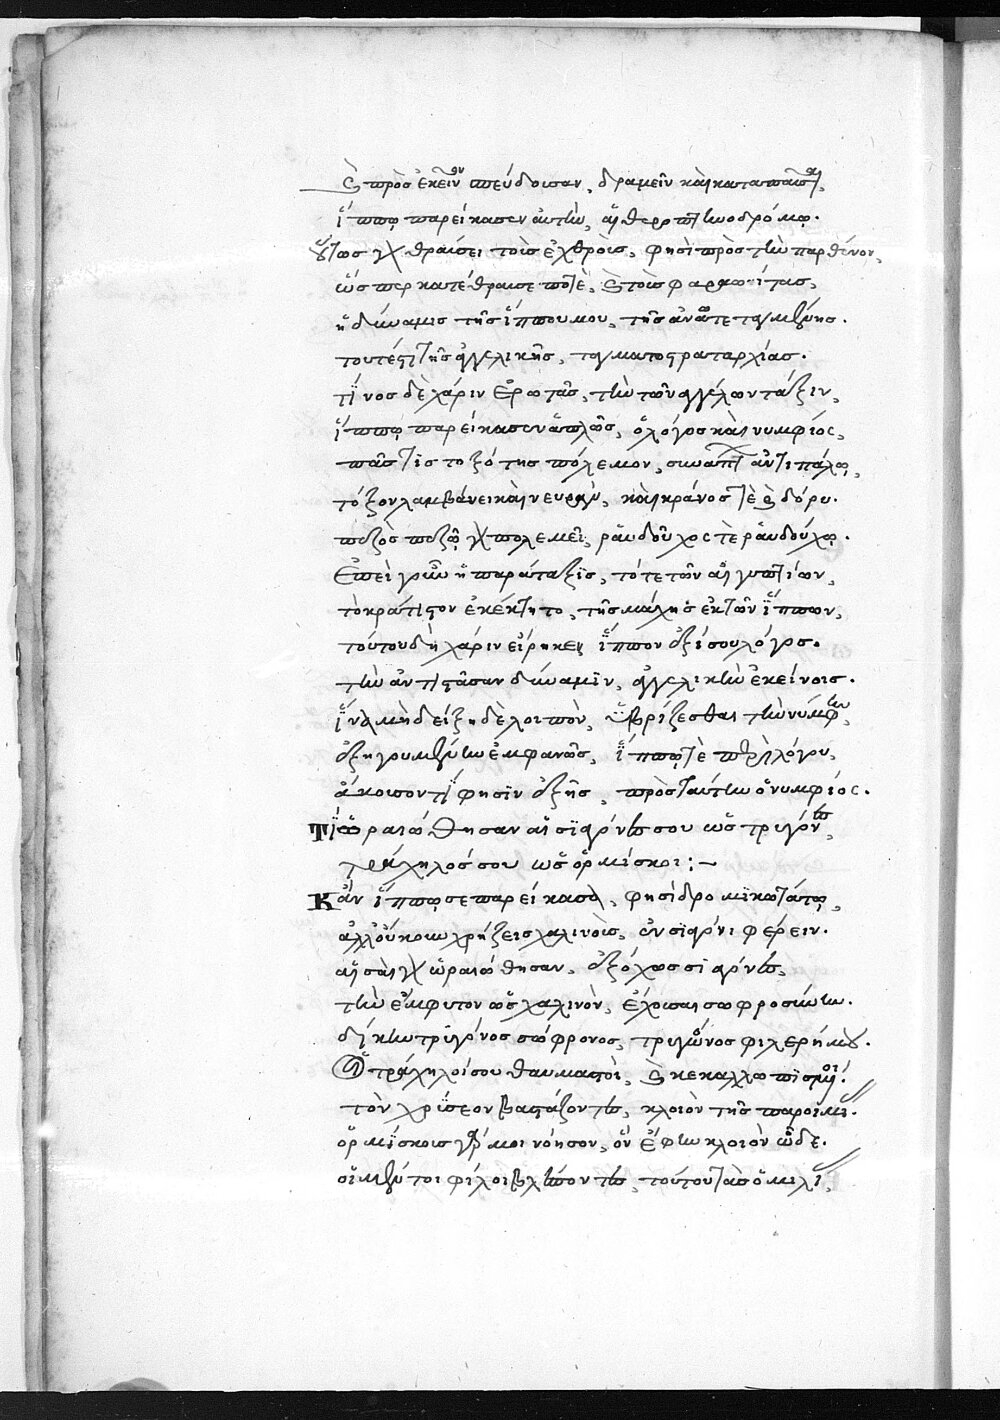 καὶ πρὸς ἐκεῖνον σπεύδουσαν, δραμεῖν καὶ καταπαῦσαι,
ἵππῳ παρείκασεν αὐτὴν, αἰθεροπτηνοδρόμῳ.
οὕτως γὰρ θραύσει τοῖς ἐχθροῖς, φησὶ πρὸς τὴν παρθένον,
ὥσπερ κατέθραυσε ποτὲ, καὶ τοῖς φαραωνίτας,
ἡ δύναμις τῆς ἵππου μου, τῆς ἄνω τεταγμένης.
τουτέστι τῆς ἀγγελικῆς, ταγματοστραταρχίας.
τίνος δὲ χάριν ἐρωτᾶς, τὴν τῶν ἀγγέλων τάξιν,
ἵππῳ παρείκασεν ἁπλῶς, ὁ λόγος καὶ νυμφίος,
πᾶς τις τοξότης πόλεμον, συνάπτων ἀντιπάλῳ,
τόξον λαμβάνει καὶ νευρὰν, καὶ κράνος τὲ καὶ δόρυ.
πεζὸς πεζῷ γὰρ πολεμεῖ, ῥαυδοῦχος τὲ ῥαυδούχῳ.
ἐπεὶ γοῦν ἡ παράταξις, τότε τῶν αἰγυπτίων,
τὸ κράτιστον ἐκέκτητο, τῆς μάχης ἐκ τῶν ἵππων,
τούτου δὴ χάριν εἴρηκεν ἵππον ὀξὺς ὁ λόγος.
τὴν ἀντιστᾶσαν δύναμιν, ἀγγελικὴν ἐκείνοις.
ἵνα μὴ δείξῃ δὲ λοιπὸν, ὑβρίζεσθαι τὴν νύμφην,
ἐξηγουμένην ἐμφανῶς, ἵππῳ τὲ περὶ λόγου,
ἄκουσον τί φησὶν ἑξῆς, πρὸς ταύτην ὁ νυμφίος.
Τί ὡραιώθησαν αἱ σιαγόνες σου ὡς τρυγόνες,
τράχηλός σου ὡς ὁρμίσκοι:~
Κἂν ἵππῳ σε παρείκασα, φησὶ δρομικωτάτῳ,
ἀλλ' οὐκουν χρήζεις χαλινοῖς, ἐν σιαγόνι φέρειν.
αἱ σαὶ γὰρ ὡραιώθησαν, ἐξόχως σιαγόνες,
τὴν ἔμφυτον ὡς χαλινὸν, ἔχουσαι σωφροσύνην.
δίκην τρυγόνος σώφρονος, τρυγόνος φιλερήμου.
Οἱ τράχηλοί σου θαυμαστοὶ, καὶ κεκαλλωπισμένοι.
τὸν χρύσεον βαστάζοντες, κλοιὸν τῆς παροιμίας.
ὁρμίσκους γάρ μοι νόησον, ὃν ἔφην κλοιὸν ὧδε.
οἱ μέντοι φίλοι βλέποντες, τούτου τὰς ὁμιλίας,